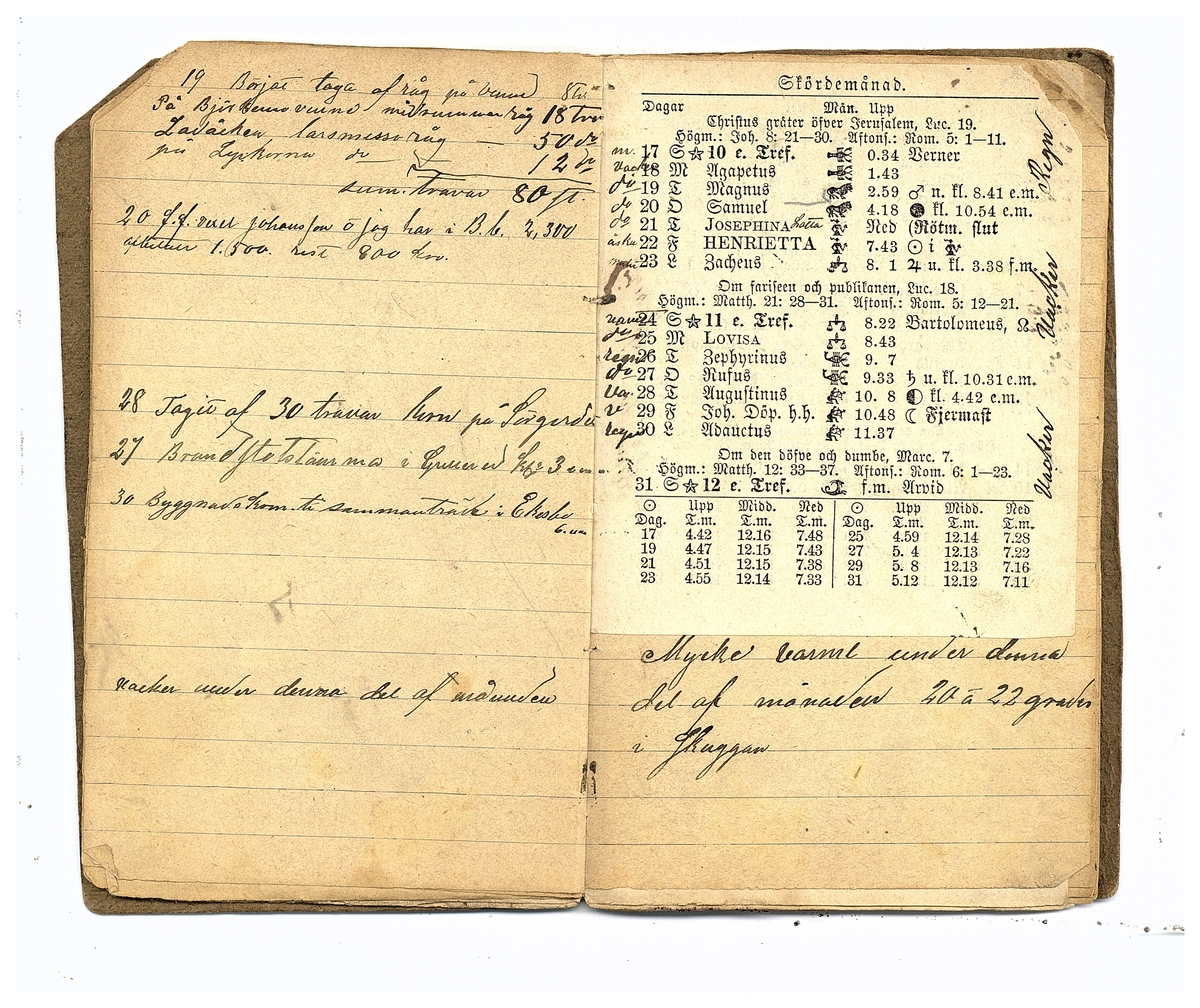 19 Börjat taga af råg på
På midsummar råg 18 trv
larsmesso råg — 50 do
på do 12 do
sum. travar 80 st.
20 johansson o jag har i B.b. 2,300
1.500. rest 800 kr.
28 Tagit af 30 travar korn på
27 Brandstotstämma i kl. 3
30 Byggnadskom.te sammanträde i Eksebo
vacker under denna del af månaden
Skördemånad.
Dagar Mån. Upp
Christus gråter öfver Jerusalem, Luc. 19.
Högm.: Joh. 8: 21—30. Aftons.: Rom. 5: 1—11.
17 S ☆ 10 e. Tref. 0.34 Verner
18 M Agapetus 1.43
do 19 T Magnus 2.59 ♂ n. kl. 8.41 e.m.
do 20 O Samuel 4.18 ● kl. 10.54 e.m.
do 21 T JOSEPHINA Lotta Ned (Rötm. slut
22 F HENRIETTA 7.43 ☉ i ♍
23 L Zacheus 8. 1 ♃ u. kl. 3.38 f.m.
Om fariseen och publikanen, Luc. 18.
Högm.: Matth. 21: 28—31. Aftons.: Rom. 5: 12—21.
24 S ☆ 11 e. Tref. 8.22 Bartolomeus, ☊
do 25 M LOVISA 8.43
regn 26 T Zephyrinus 9. 7
do 27 O Rufus 9.33 ♄ u. kl. 10.31 e.m.
va. 28 T Augustinus 10. 8 ◐ kl. 4.42 e.m.
v 29 F Joh. Döp. h.h. 10.48 ☾ Fjermast
regn 30 L Adauctus 11.37
Om den döfve och dumbe, Marc. 7.
Högm.: Matth. 12: 33—37. Aftons.: Rom. 6: 1—23.
31 S ☆ 12 e. Tref. f.m. Arvid
☉ Upp Midd. Ned ☉ Upp Midd. Ned
Dag. T.m. T.m. T.m. Dag. T.m. T.m. T.m.
17 4.42 12.16 7.48 25 4.59 12.14 7.28
19 4.47 12.15 7.43 27 5. 4 12.13 7.22
21 4.51 12.15 7.38 29 5. 8 12.13 7.16
23 4.55 12.14 7.33 31 5.12 12.12 7.11
Regn
Vacker
Vacker
Mycke varme under denna
del af månaden 20 à 22 grader
i skuggan